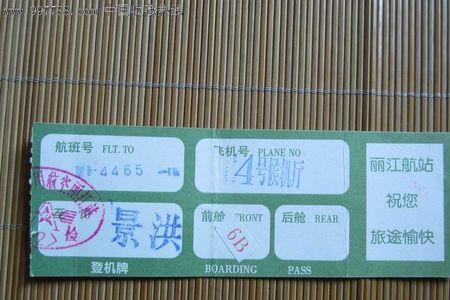 www.997788.com 中国收藏热线
航班号 FLT. TO
4465
飞机号 PLANE NO
4号候机厅
丽江航站
祝您
旅途愉快
至
景洪
检
前舱 FRONT
6B
后舱 REAR
登机牌 BOARDING PASS